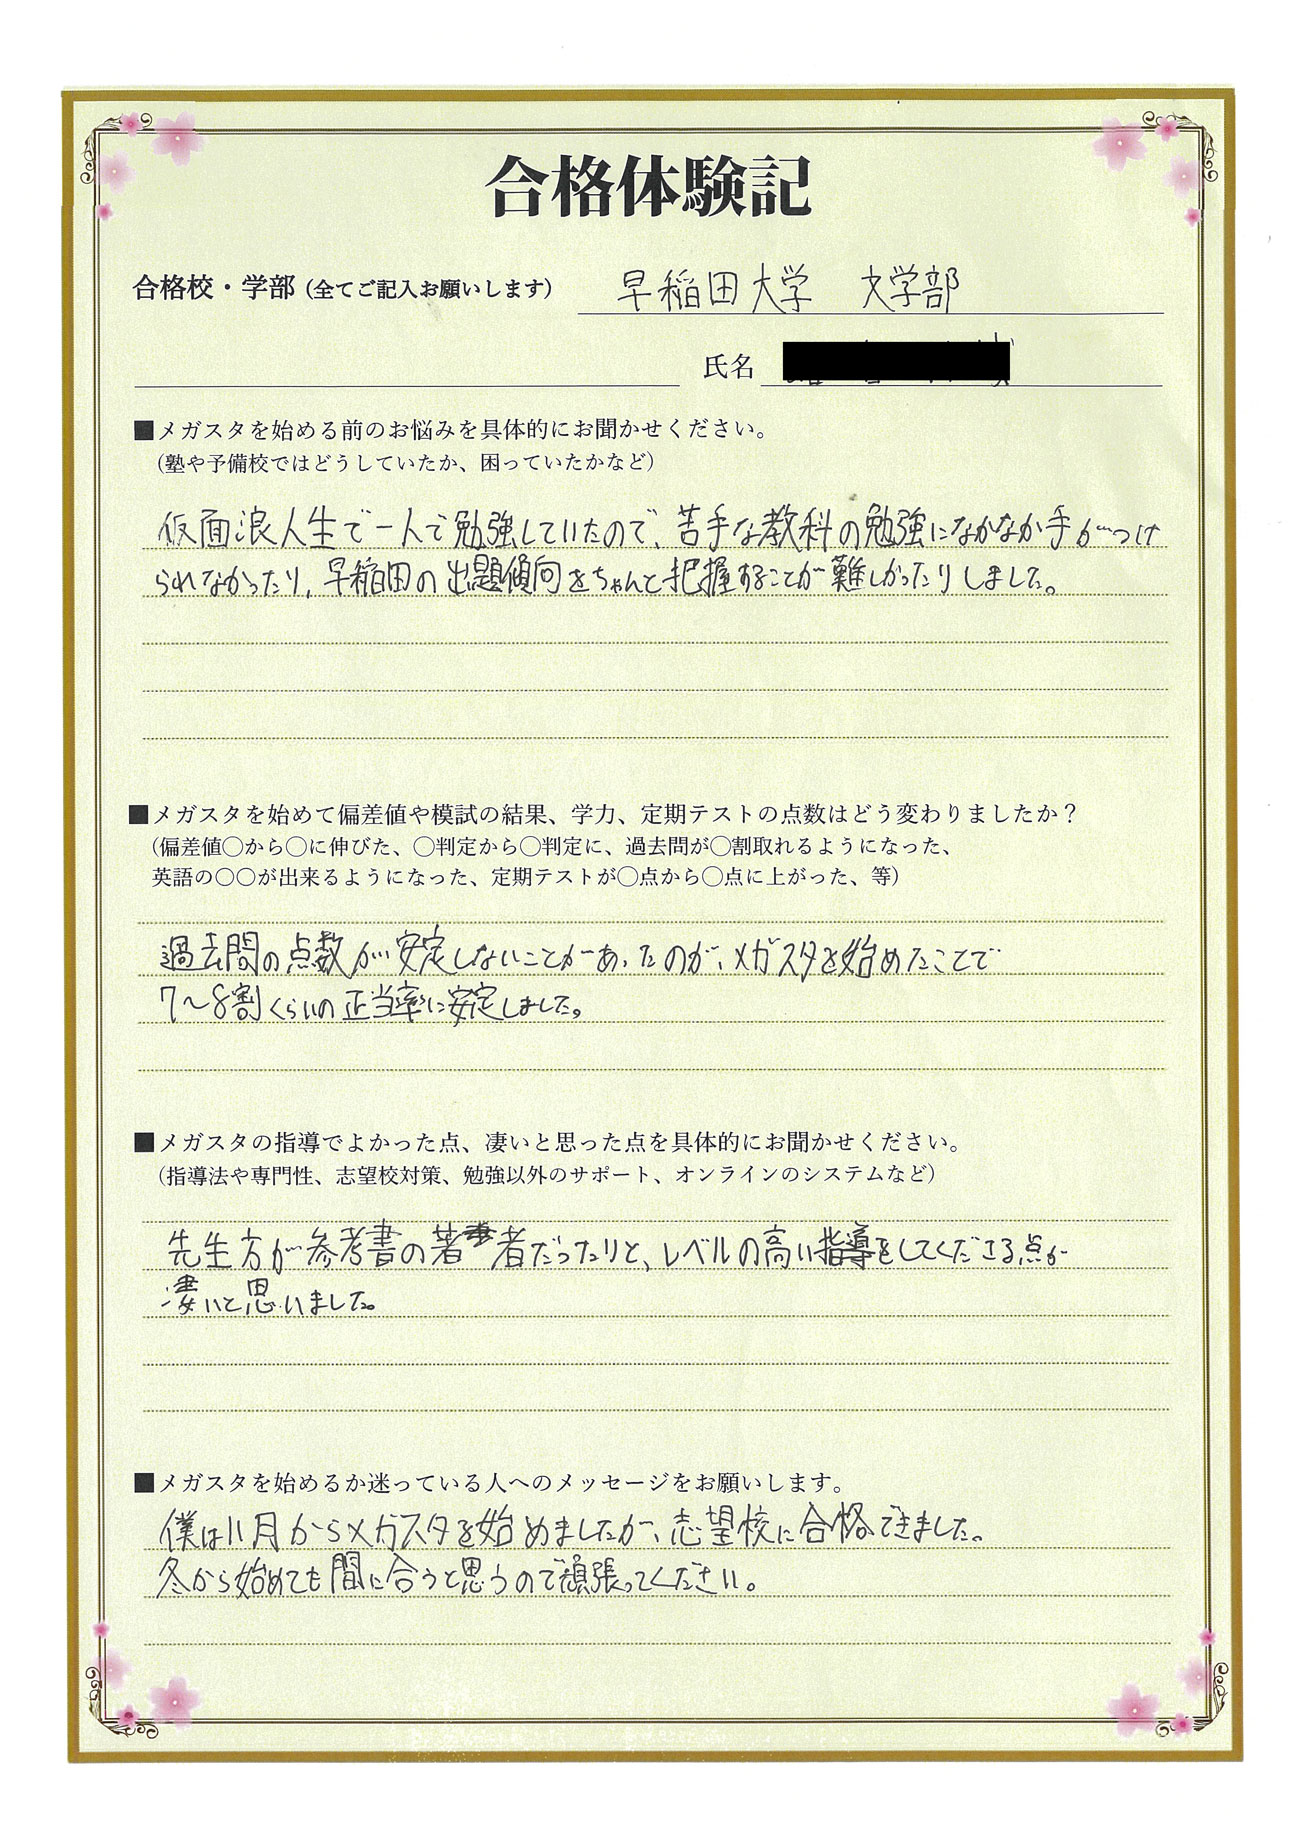 合格体験記
合格校・学部（全てご記入お願いします） 早稲田大学 文学部
氏名
■メガスタを始める前のお悩みを具体的にお聞かせください。
（塾や予備校ではどうしていたか、困っていたかなど）
仮面浪人生で一人で勉強していたので、苦手な教科の勉強になかなか手がつけ
られなかったり、早稲田の出題傾向をちゃんと把握することが難しかったりしました。
■メガスタを始めて偏差値や模試の結果、学力、定期テストの点数はどう変わりましたか？
（偏差値〇から〇に伸びた、〇判定から〇判定に、過去問が〇割取れるようになった、
英語の〇〇が出来るようになった、定期テストが〇点から〇点に上がった、等）
過去問の点数が安定しないことがあったのが、メガスタを始めたことで
7〜8割くらいの正当率に安定しました。
■メガスタの指導でよかった点、凄いと思った点を具体的にお聞かせください。
（指導法や専門性、志望校対策、勉強以外のサポート、オンラインのシステムなど）
先生方が参考書の著者だったりと、レベルの高い指導をしてくださる点が
凄いと思いました。
■メガスタを始めるか迷っている人へのメッセージをお願いします。
僕は11月からメガスタを始めましたが、志望校に合格できました。
冬から始めても間に合うと思うので頑張ってください。